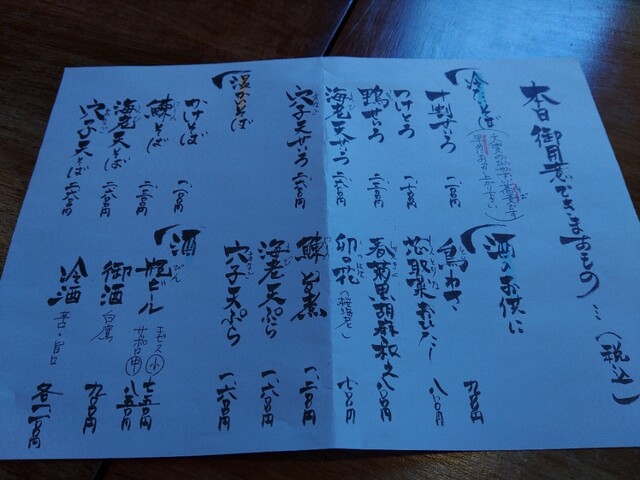 本日御用意できますもの…（税込）
冷たいそば
十割せいろ 一、二〇〇円
つけとろ 一、七〇〇円
鴨せいろ 二、二〇〇円
海老天せいろ 二、六〇〇円
穴子天せいろ 二、六〇〇円
温かいそば
かけそば 一、二〇〇円
鰊そば 二、二〇〇円
海老天そば 二、六〇〇円
穴子天そば 二、六〇〇円
酒のお供に
鳥わさ 九五〇円
恐取菜おひたし 八〇〇円
春菊黒胡麻和え 八〇〇円
卯の花（桜海老） 七〇〇円
鰊旨煮 一、二〇〇円
海老天ぷら 一、六〇〇円
穴子天ぷら 一、六〇〇円
酒
瓶ビール
ヱビス小 七五〇円
サッポロ中 八五〇円
御酒 白鷹 九五〇円
冷酒 各一、一〇〇円